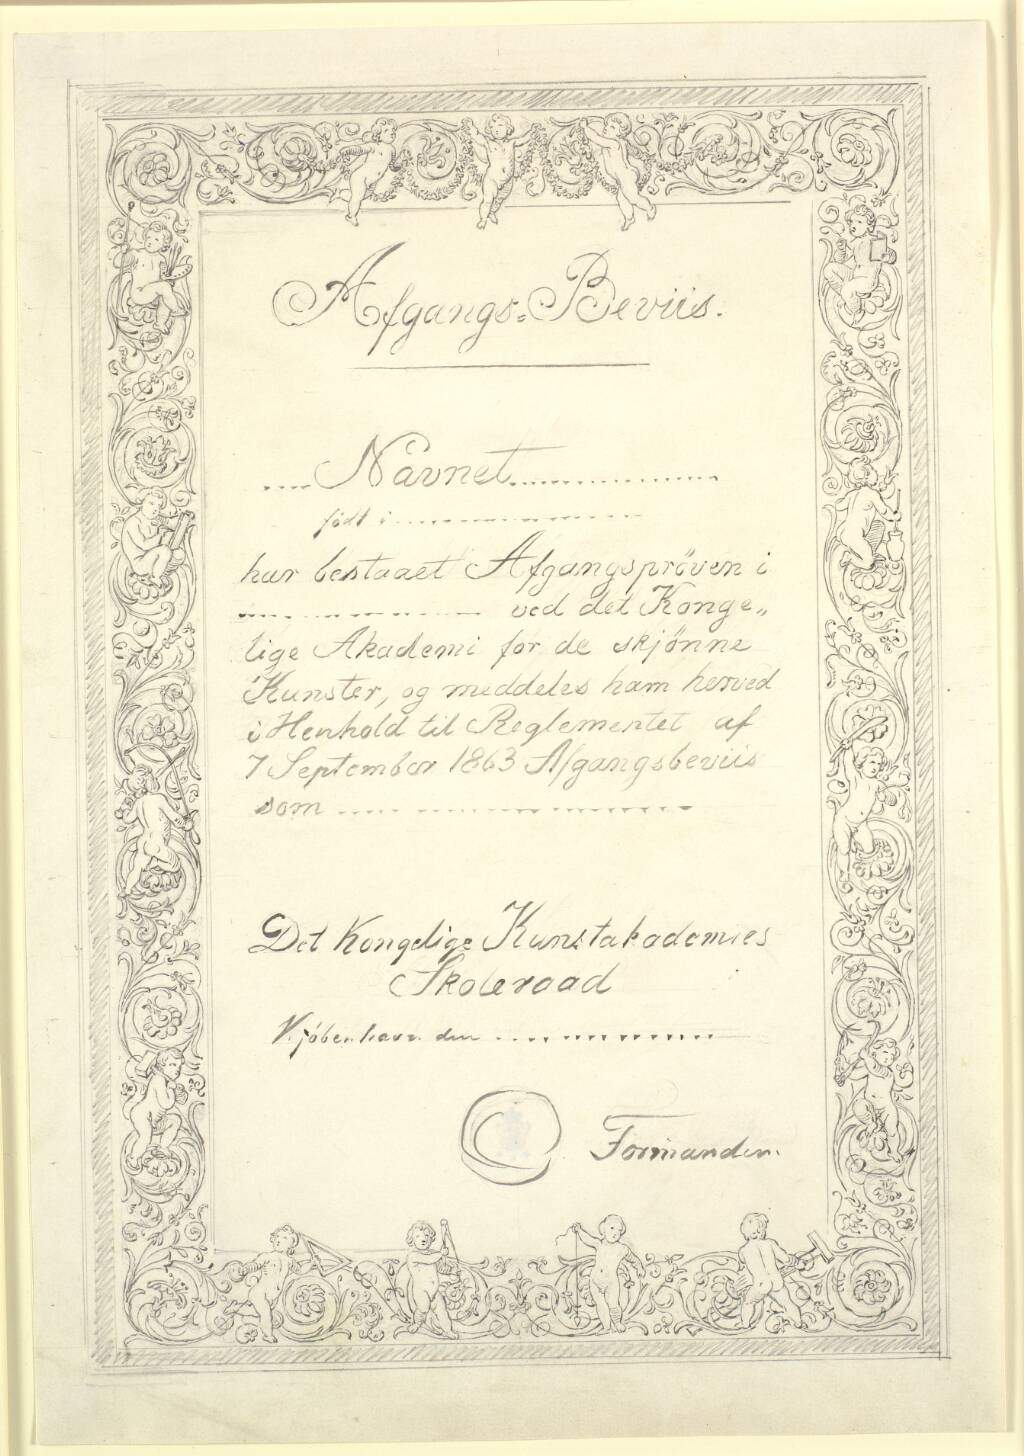 Afgangs=Beviis.
.... Navnet................
født i ................
har bestaaet Afgangsprøven i
................ ved det Konge„
lige Akademi for de skjønne
Kunster, og meddeles ham herved
i Henhold til Reglementet af
7 September 1863 Afgangsbeviis
som ................
Det Kongelige Kunstakademies
Skoleraad
Kjøbenhavn den ................
Formanden.